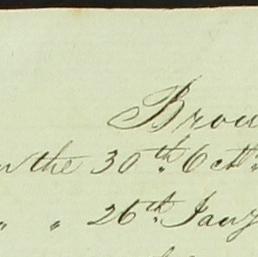 Brow
the 30th Octr
" " 26th Jany